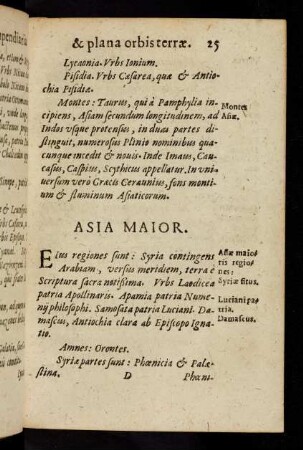 & plana orbis terræ. 25
Lycaonia. Vrbs Ionium.
Pisidia. Vrbs Cæsarea, quæ & Antio-
chia Pisidiæ.
Montes: Taurus, qui à Pamphylia in-
cipiens, Asiam secundum longitudinem, ad
Indos vsque protensus, in duas partes di-
stinguit, numerosus Plinio nominibus qua-
cunque incedit & nouis. Inde Imaus, Cau-
casus, Caspius, Scythicus appellatur. In vni-
uersum verò Græcis Ceraunius, fons monti-
um & fluminum Asiaticorum.
Montes
Asiæ.
ASIA MAIOR.
Eius regiones sunt: Syria contingens
Arabiam, versus meridiem, terra è
Scriptura sacra notissima. Vrbs Laodicea
patria Apollinaris. Apamia patria Nume-
nij philosophi. Samosata patria Luciani. Da-
mascus, Antiochia clara ab Episcopo Igna-
tio.
Asiæ maio-
ris regio-
nes:
Syriæ situs.
Luciani pa-
tria.
Damascus.
Amnes: Orontes.
Syriæ partes sunt: Phœnicia & Palæ-
stina.
D Phœni-